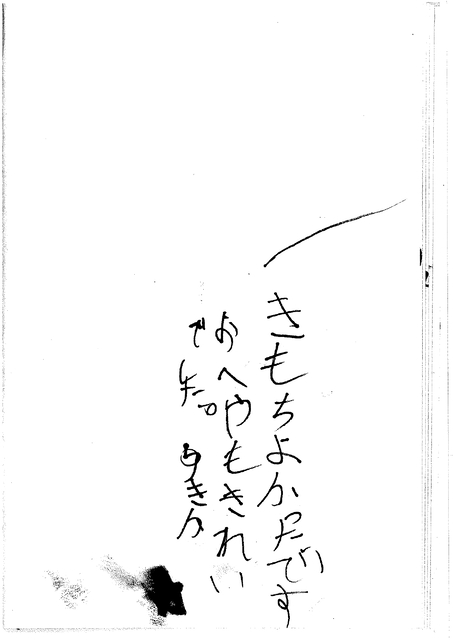 きもちよかったです
おへやもきれい
でした。 ゆきか